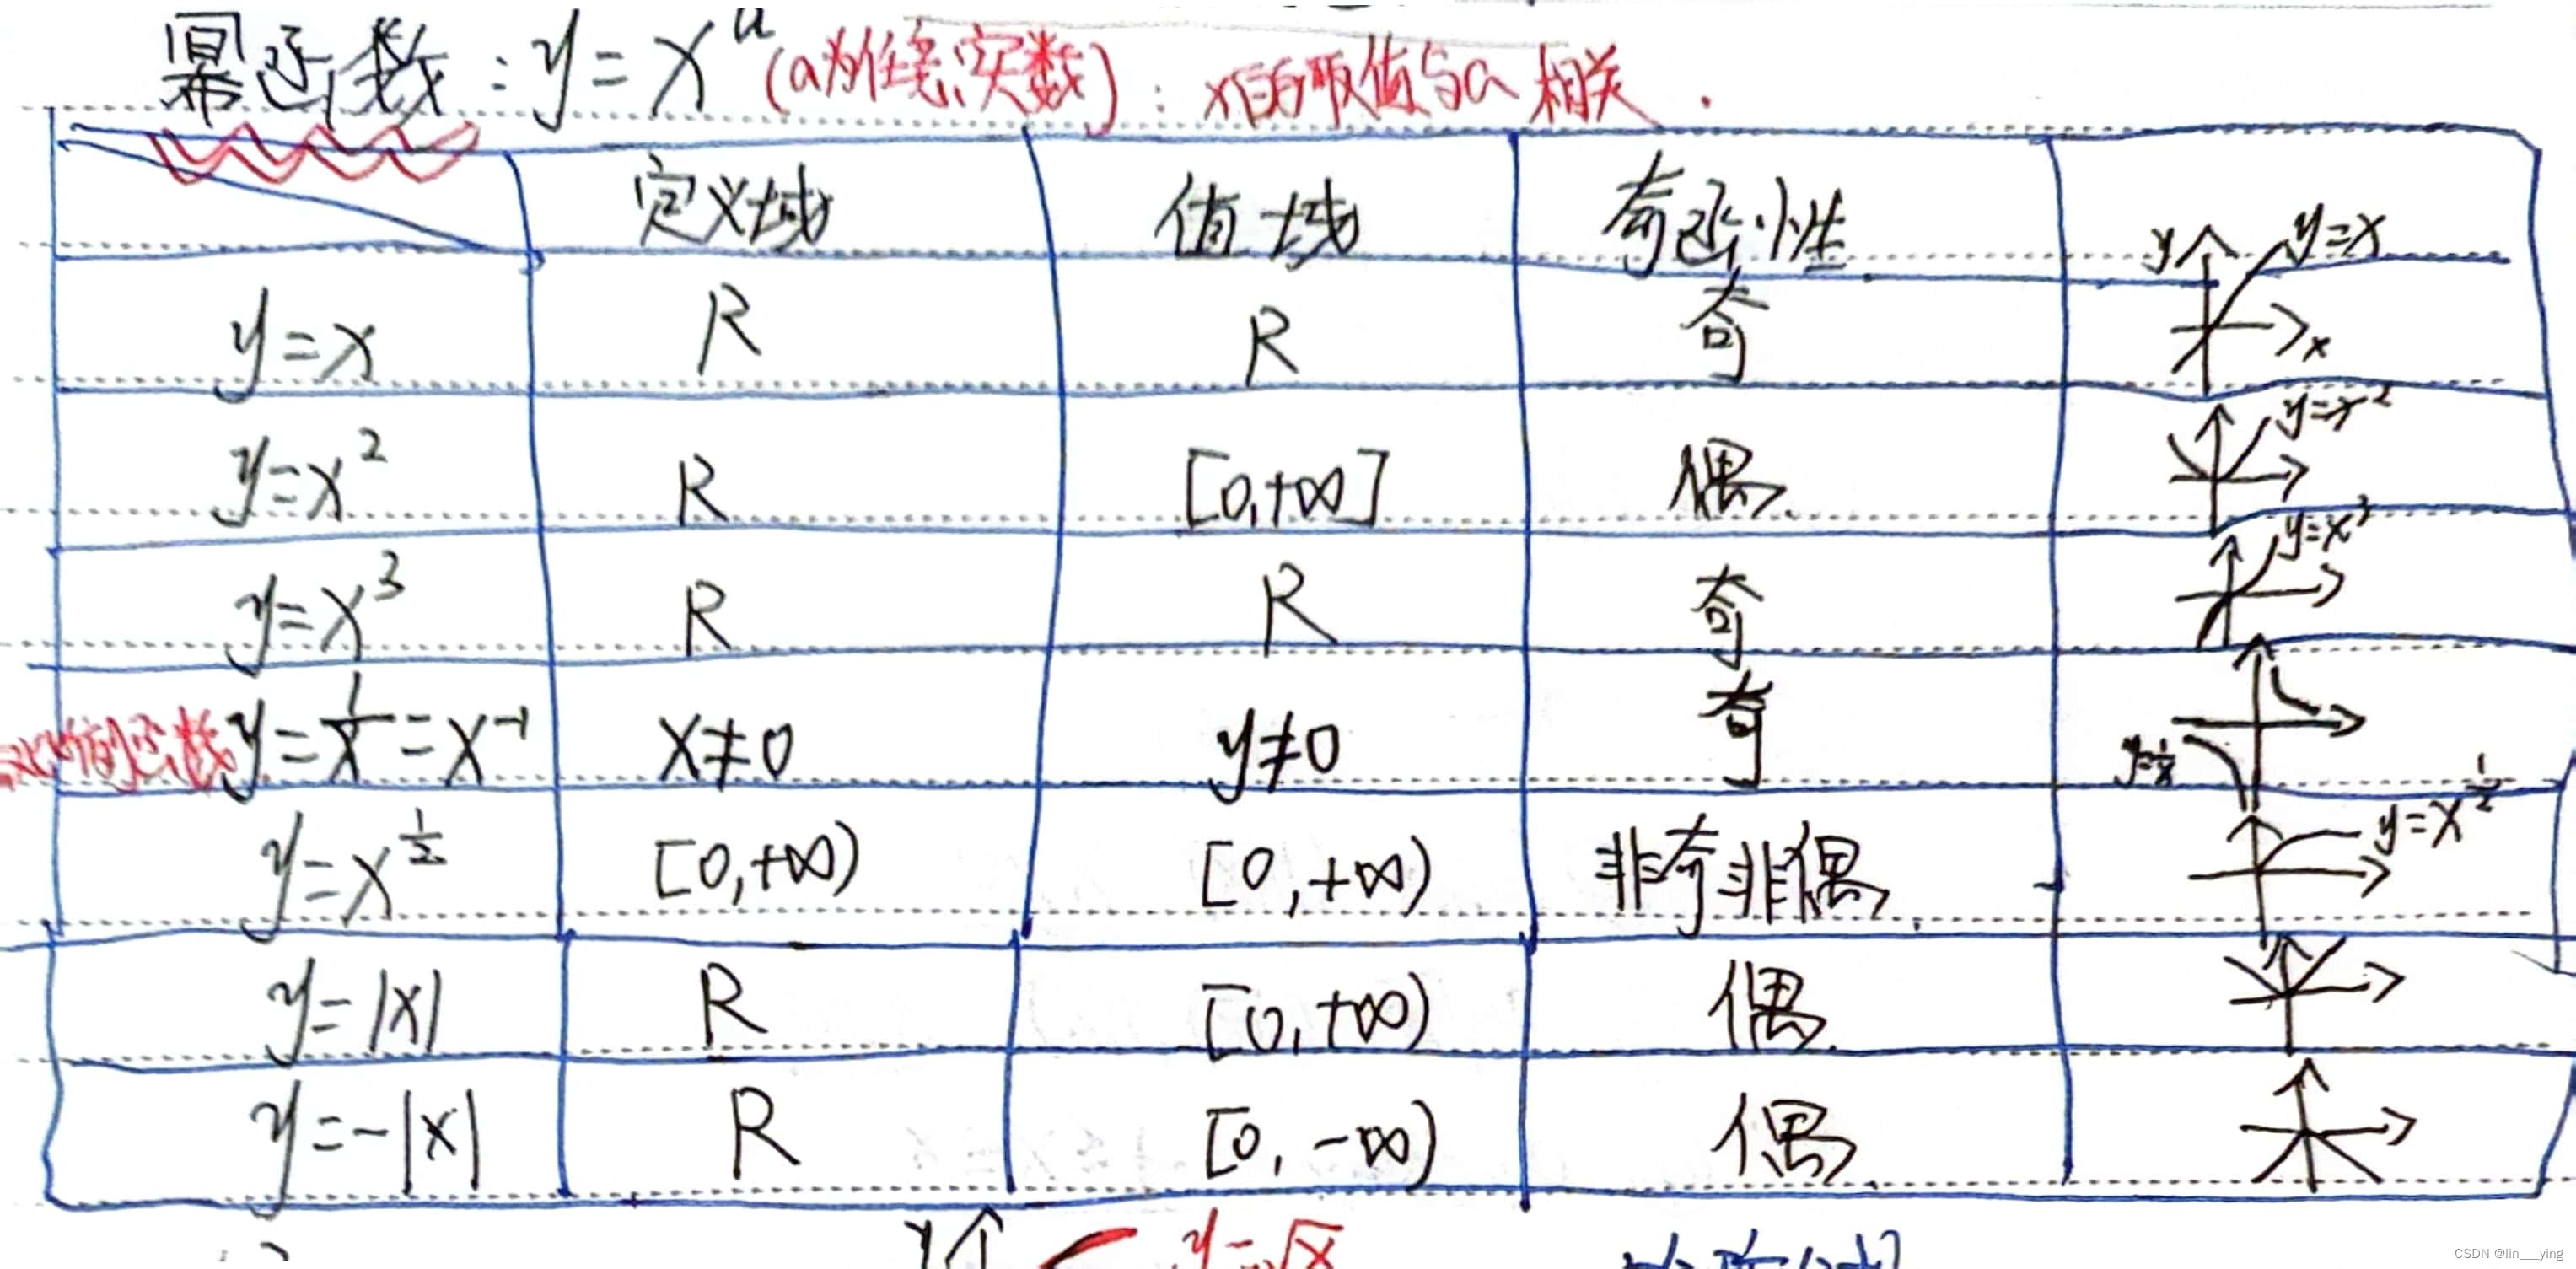 幂函数：y=x^a (a为任意实数)：x的取值与a相关.
定义域 值域 奇函性
y=x R R 奇 y y=x x
y=x² R [0,+∞] 偶 y=x²
y=x³ R R 奇 y=x³
y=1/x=x⁻¹ x≠0 y≠0 奇 y=1/x
y=x^½ [0,+∞) [0,+∞) 非奇非偶 y=x^½
y=|x| R [0,+∞) 偶
y=-|x| R [0,-∞) 偶
y y=√x
CSDN @lin___ying